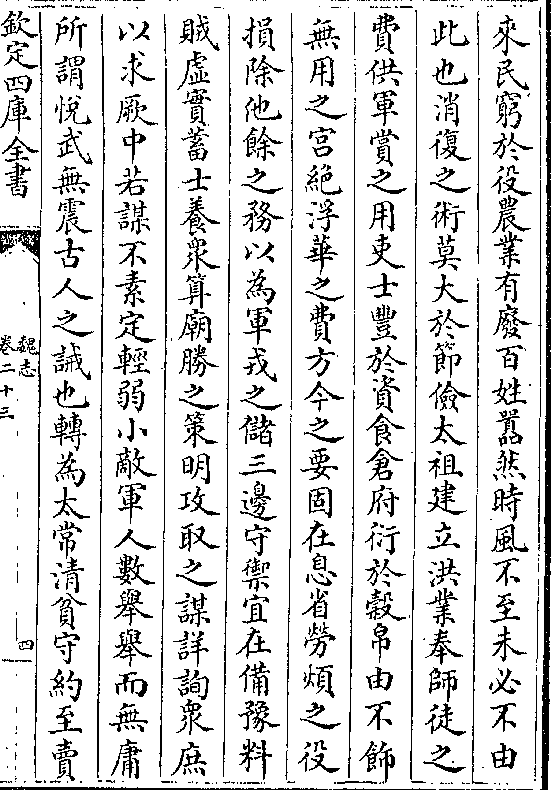 來民窮於役農業有廢百姓囂然時風不至未必不由
此也消復之術莫大於節儉太祖建立洪業奉師徒之
費供軍賞之用吏士豐於資食倉府衍於穀帛由不飾
無用之宮絶浮華之費方今之要固在息省勞煩之役
損除他餘之務以為軍戎之儲三邊守禦宜在備豫料
賊虛實蓄士養衆算廟勝之策明攻取之謀詳詢衆庶
以求厥中若謀不素定輕弱小敵軍人數舉舉而無庸
所謂悅武無震古人之誡也轉為太常清貧守約至賣
欽定四庫全書
魏志
卷二十三
四